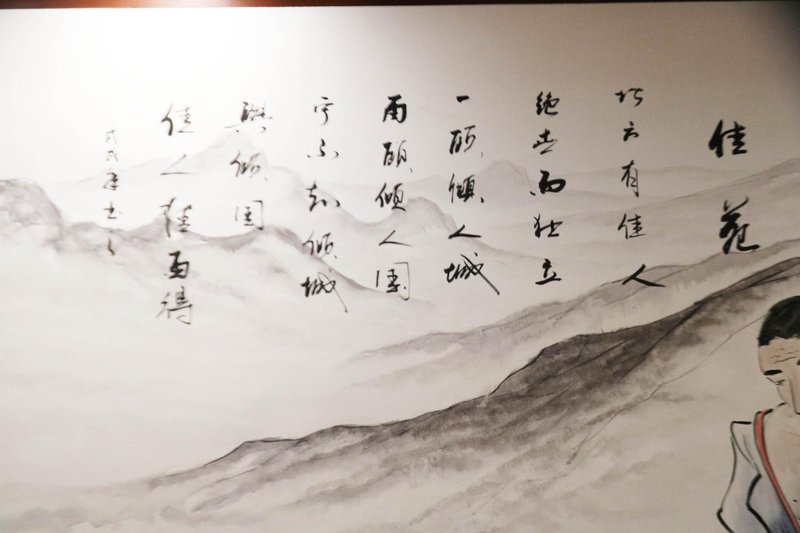 佳苑
北方有佳人
絶世而独立
一顾倾人城
再顾倾人国
宁不知倾城
與倾国
佳人難再得